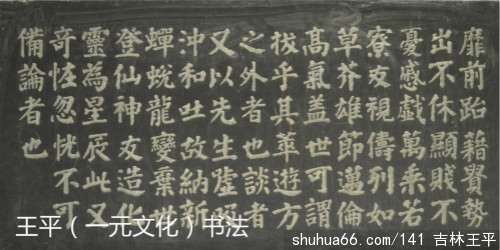 靡前跆籍貴勢
出不休顯賤不
憂慼戲萬乘若
寮友視儔列如
草芥雄節邁倫
高氣盖世可謂
拔乎其萃遊方
之外者也談者
又以先生噓吸
沖和吐故納新
蟬蛻龍變棄世
登仙神友造化
靈為星辰此又
奇怪忽恍不可
備論者也
王平（一元文化）书法
shuhua66.com/141 吉林王平